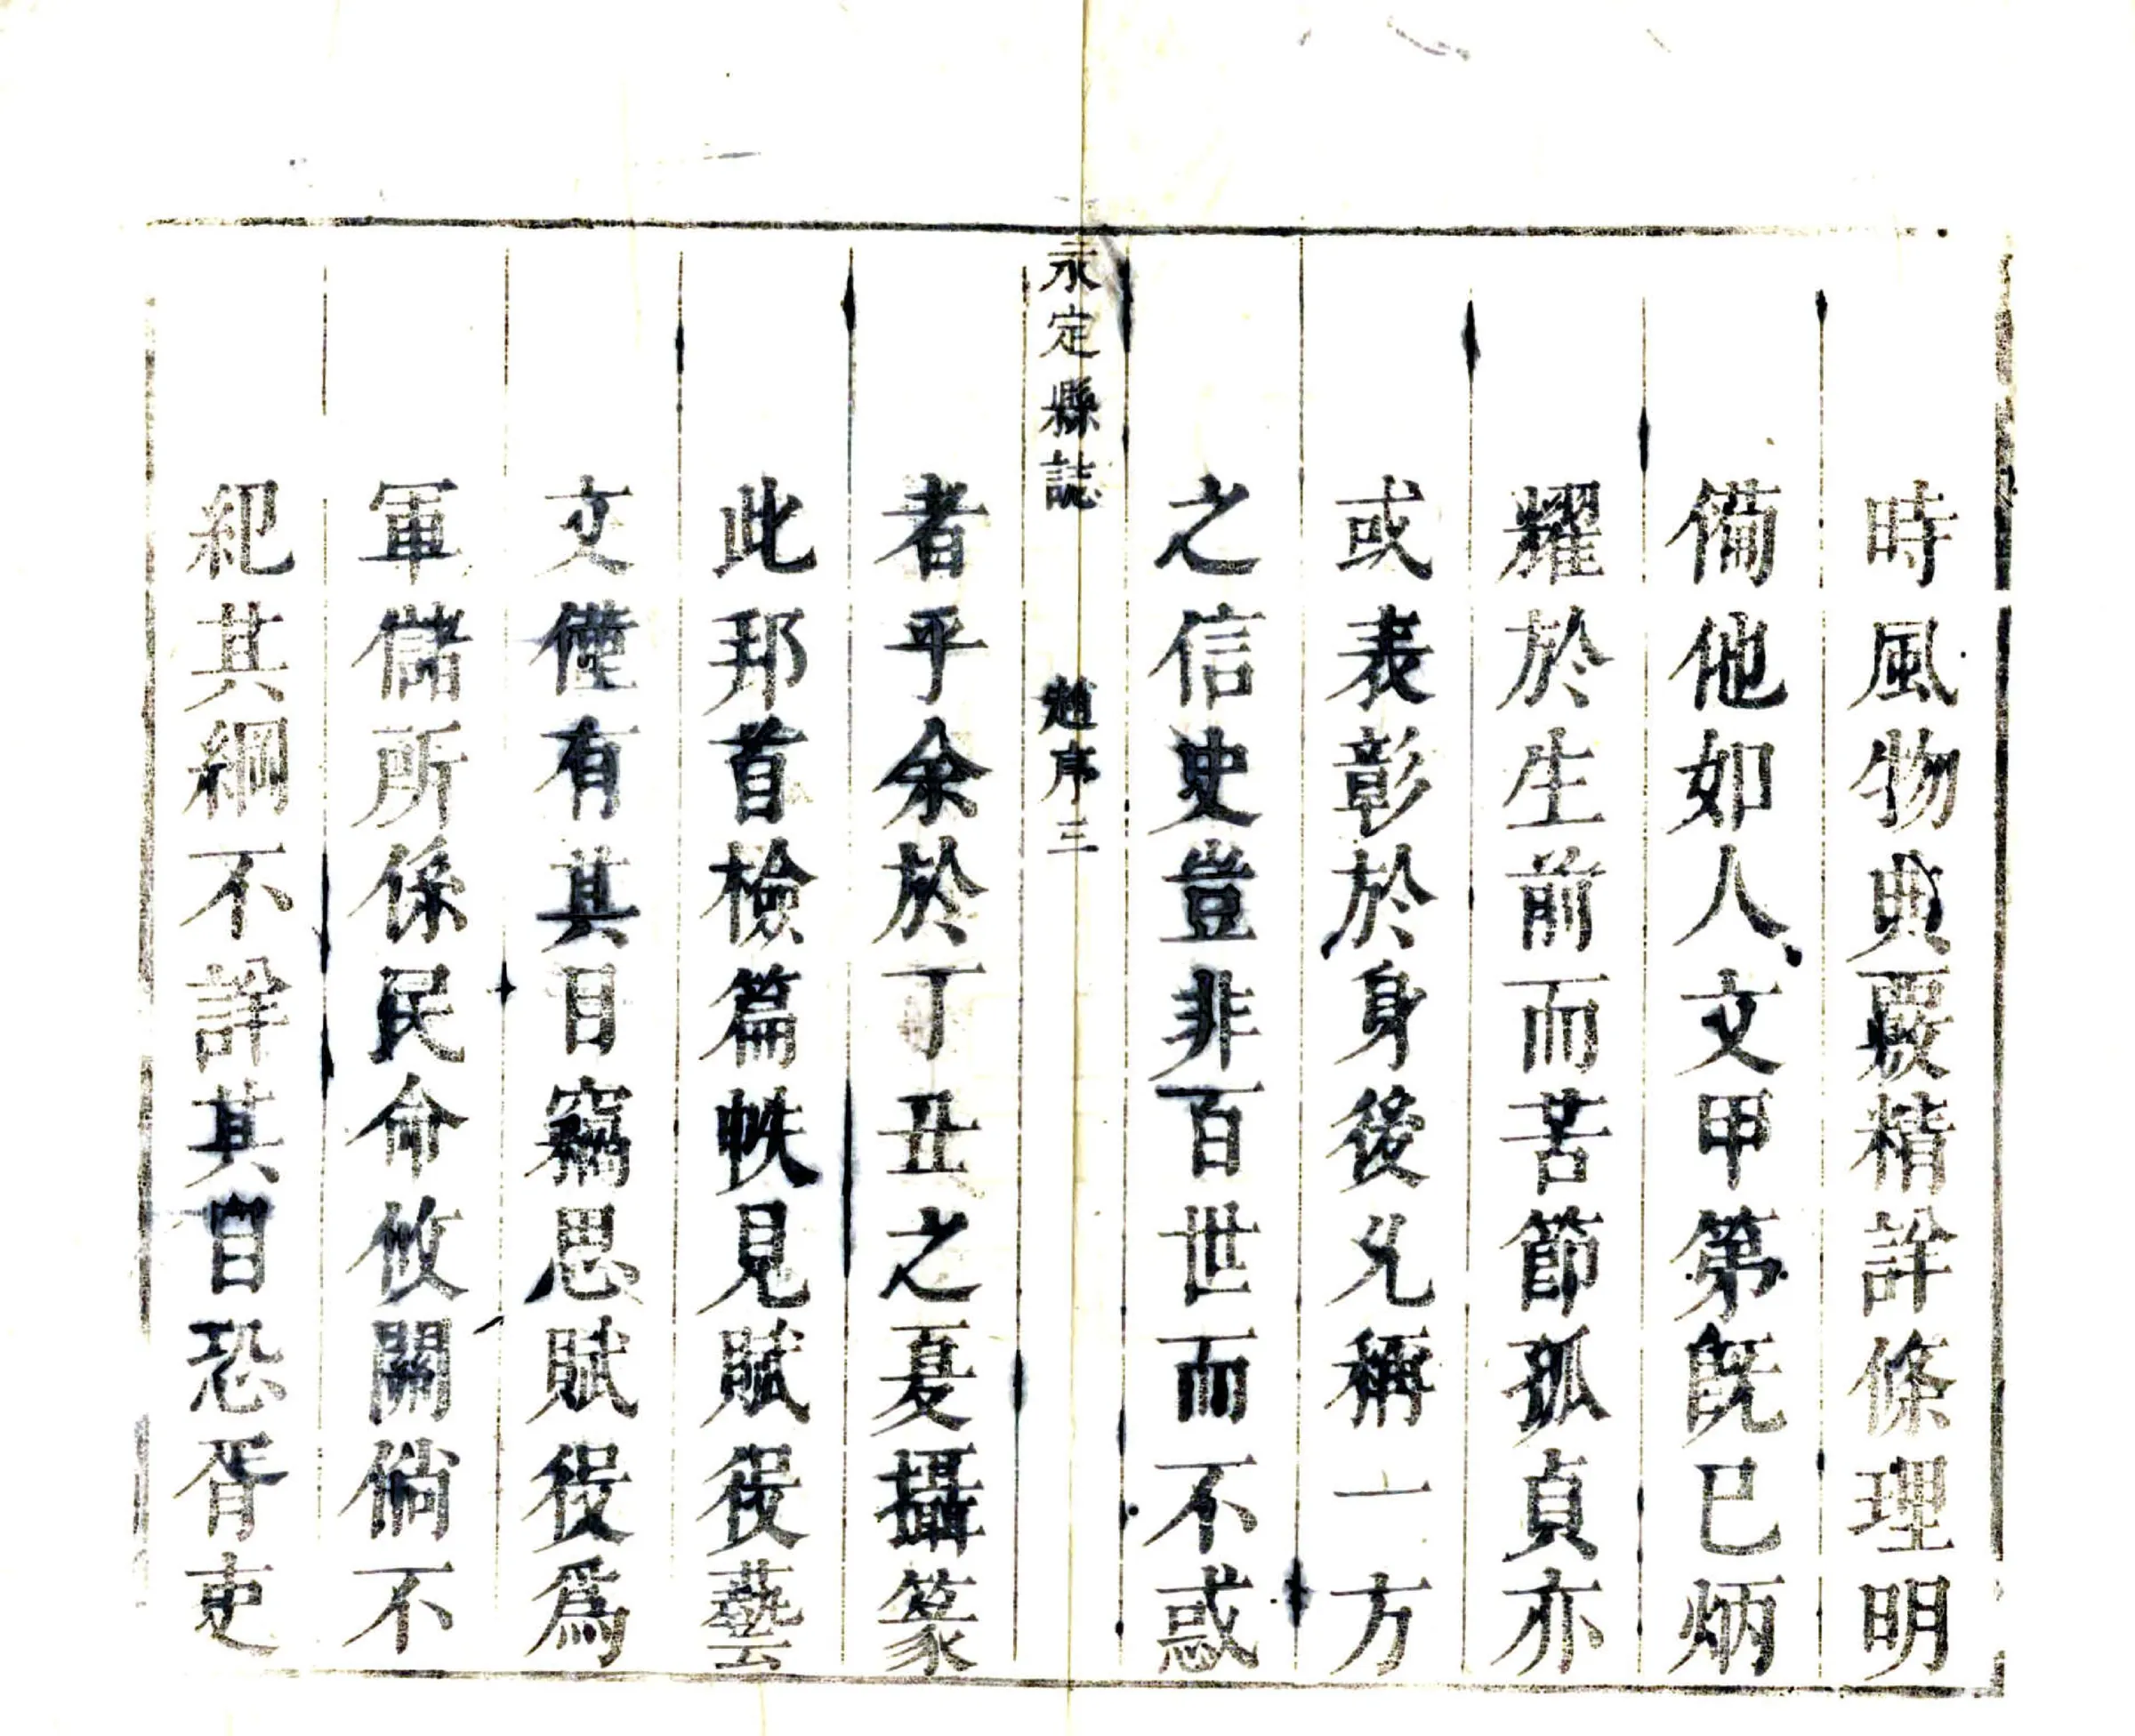 時風物典覈精詳條理明
備他如人文甲第旣已炳
耀於生前而苦節孤貞亦
或表彰於身後允稱一方
之信史豈非百世而不惑
永定縣誌
趙序三
者乎余於丁丑之夏攝篆
此邦首檢篇帙見賦役藝
文僅有其目竊思賦役為
軍儲所係民命攸關倘不
紀其綱不詳其目恐胥吏